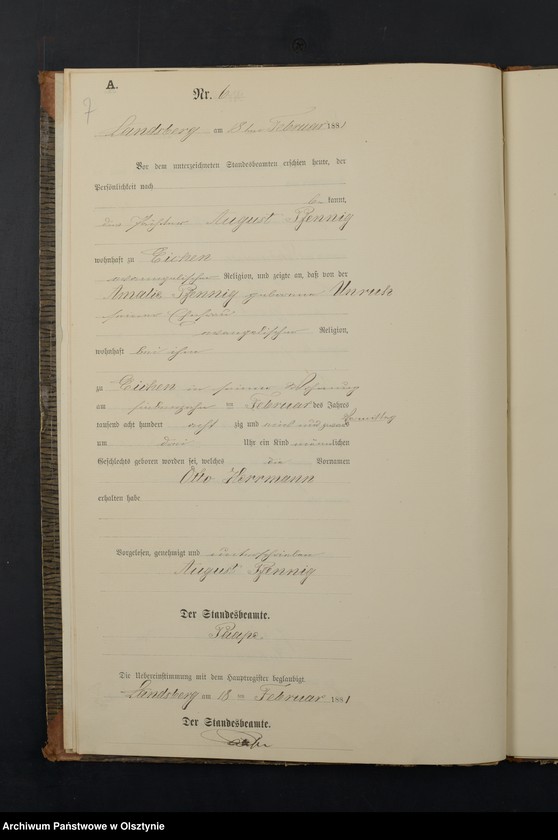 A.
7
Nr. 6
Landsberg am 18ten Februar 1881
Vor dem unterzeichneten Standesbeamten erschien heute, der
Persönlichkeit nach
be kannt,
der August Pfennig
wohnhaft zu Eichen
evangelischer Religion, und zeigte an, daß von der
Amalie Pfennig geborene Unruh
seiner Ehefrau
evangelischer Religion,
wohnhaft bei ihm
zu Eichen in seiner Wohnung
am siebenzehn ten Februar des Jahres
tausend acht hundert acht zig und eins
um drei Uhr ein Kind männlichen
Geschlechts geboren worden sei, welches die Vornamen
Otto Herrmann
erhalten habe
Vorgelesen, genehmigt und unterschrieben
August Pfennig
Der Standesbeamte.
Die Uebereinstimmung mit dem Hauptregister beglaubigt.
Landsberg am 18 ten Februar 1881
Der Standesbeamte.
Archiwum Państwowe w Olsztynie